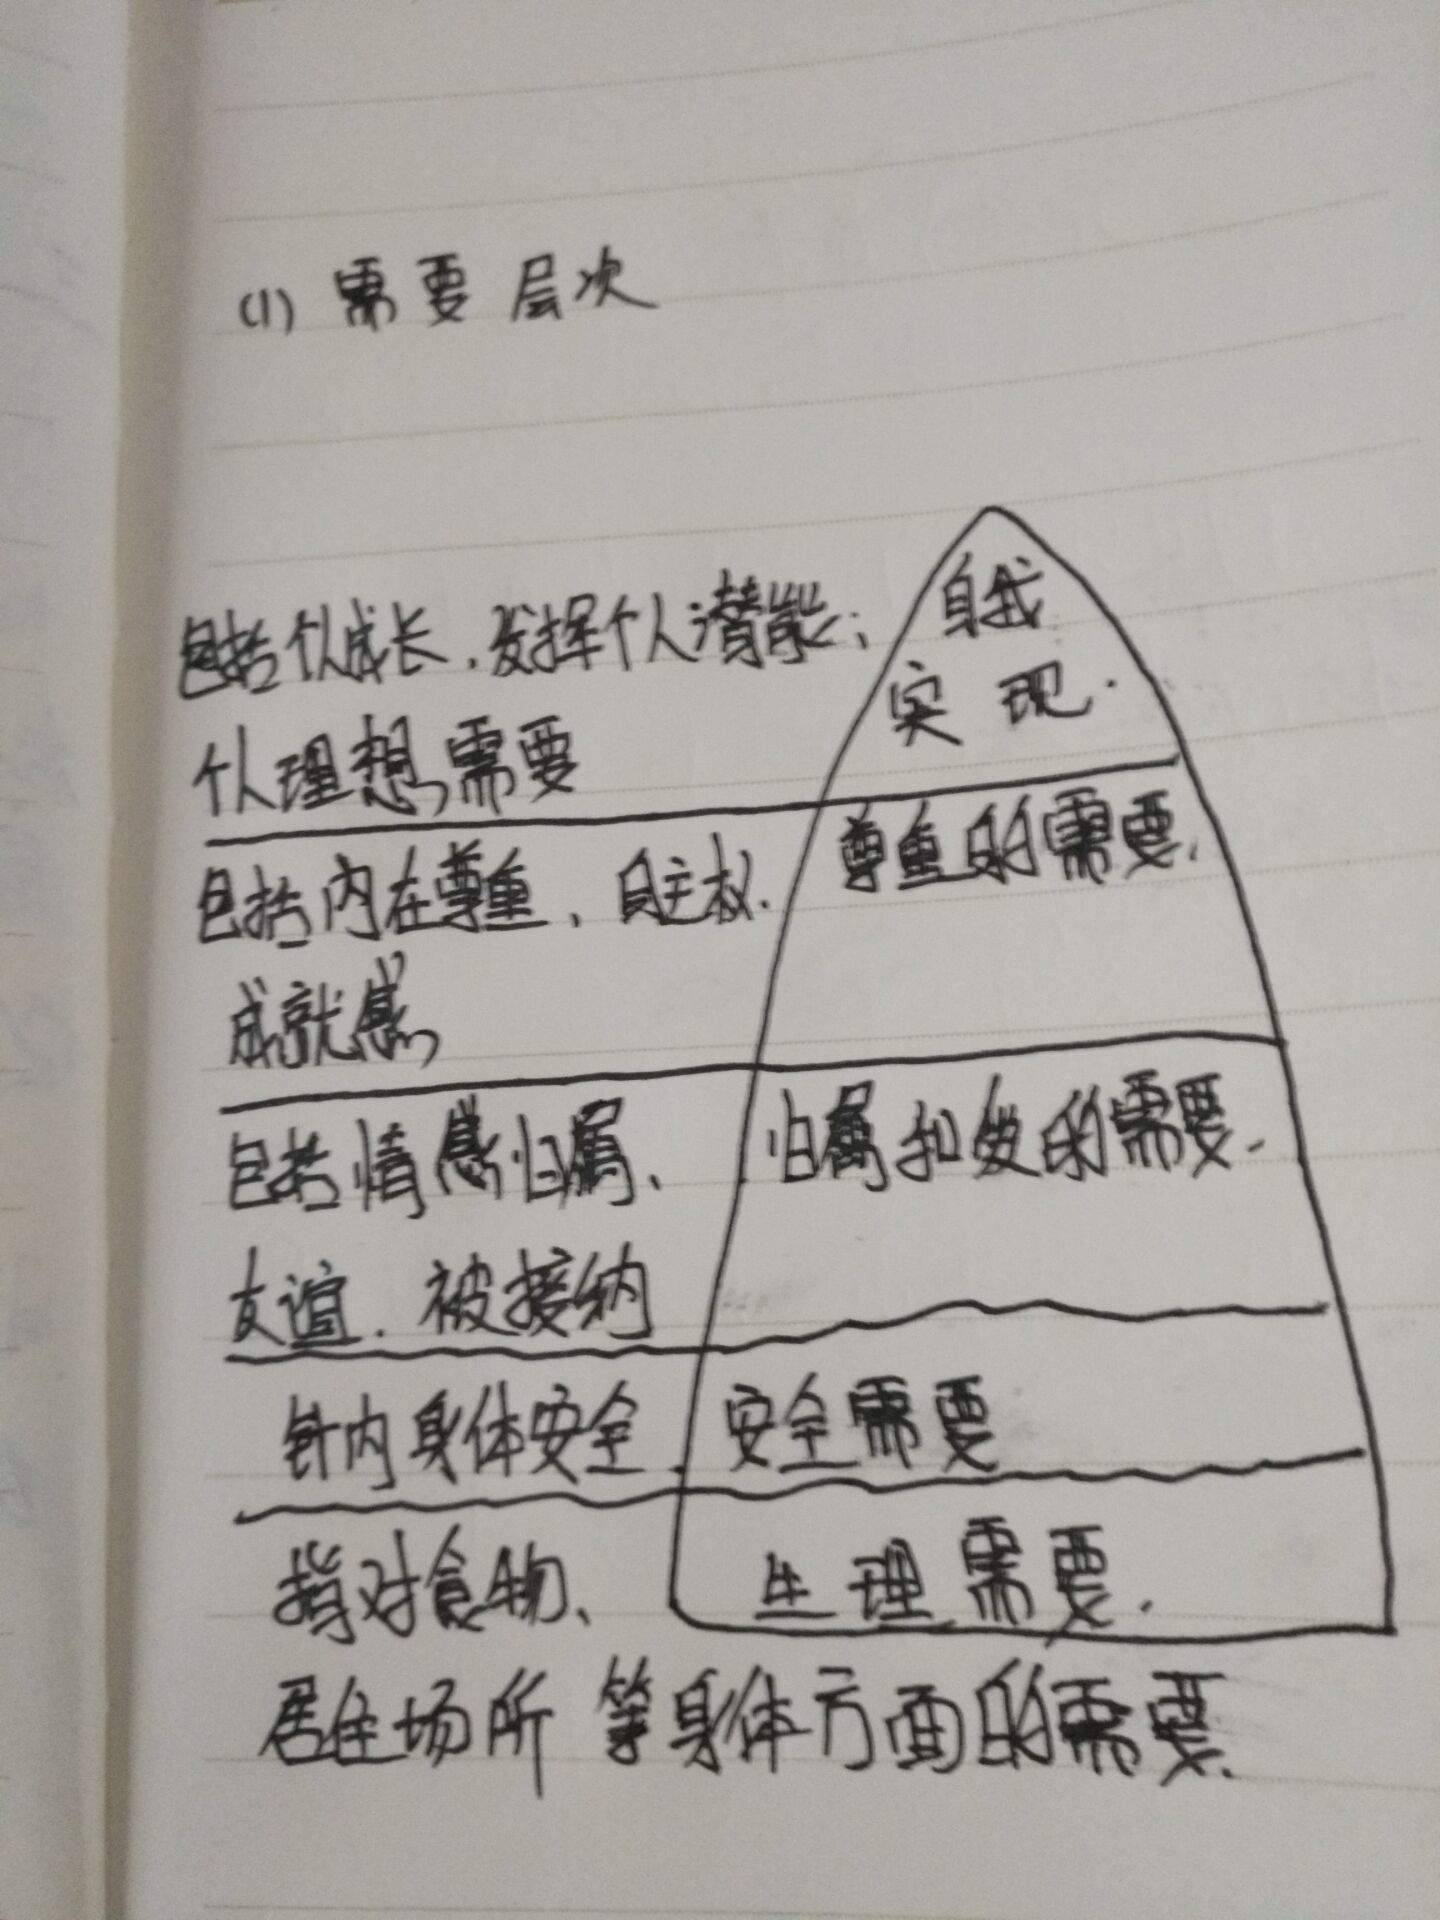 (1) 需要层次
包括个人成长、发挥个人潜能、
自我
实现.
个人理想需要
尊重的需要.
包括内在尊重、自主权.
成就感
包括情感归属、
归属和爱的需要.
友谊、被接纳
针内身体安全. 安全需要
指对食物、 生理需要.
居住场所等身体方面的需要.